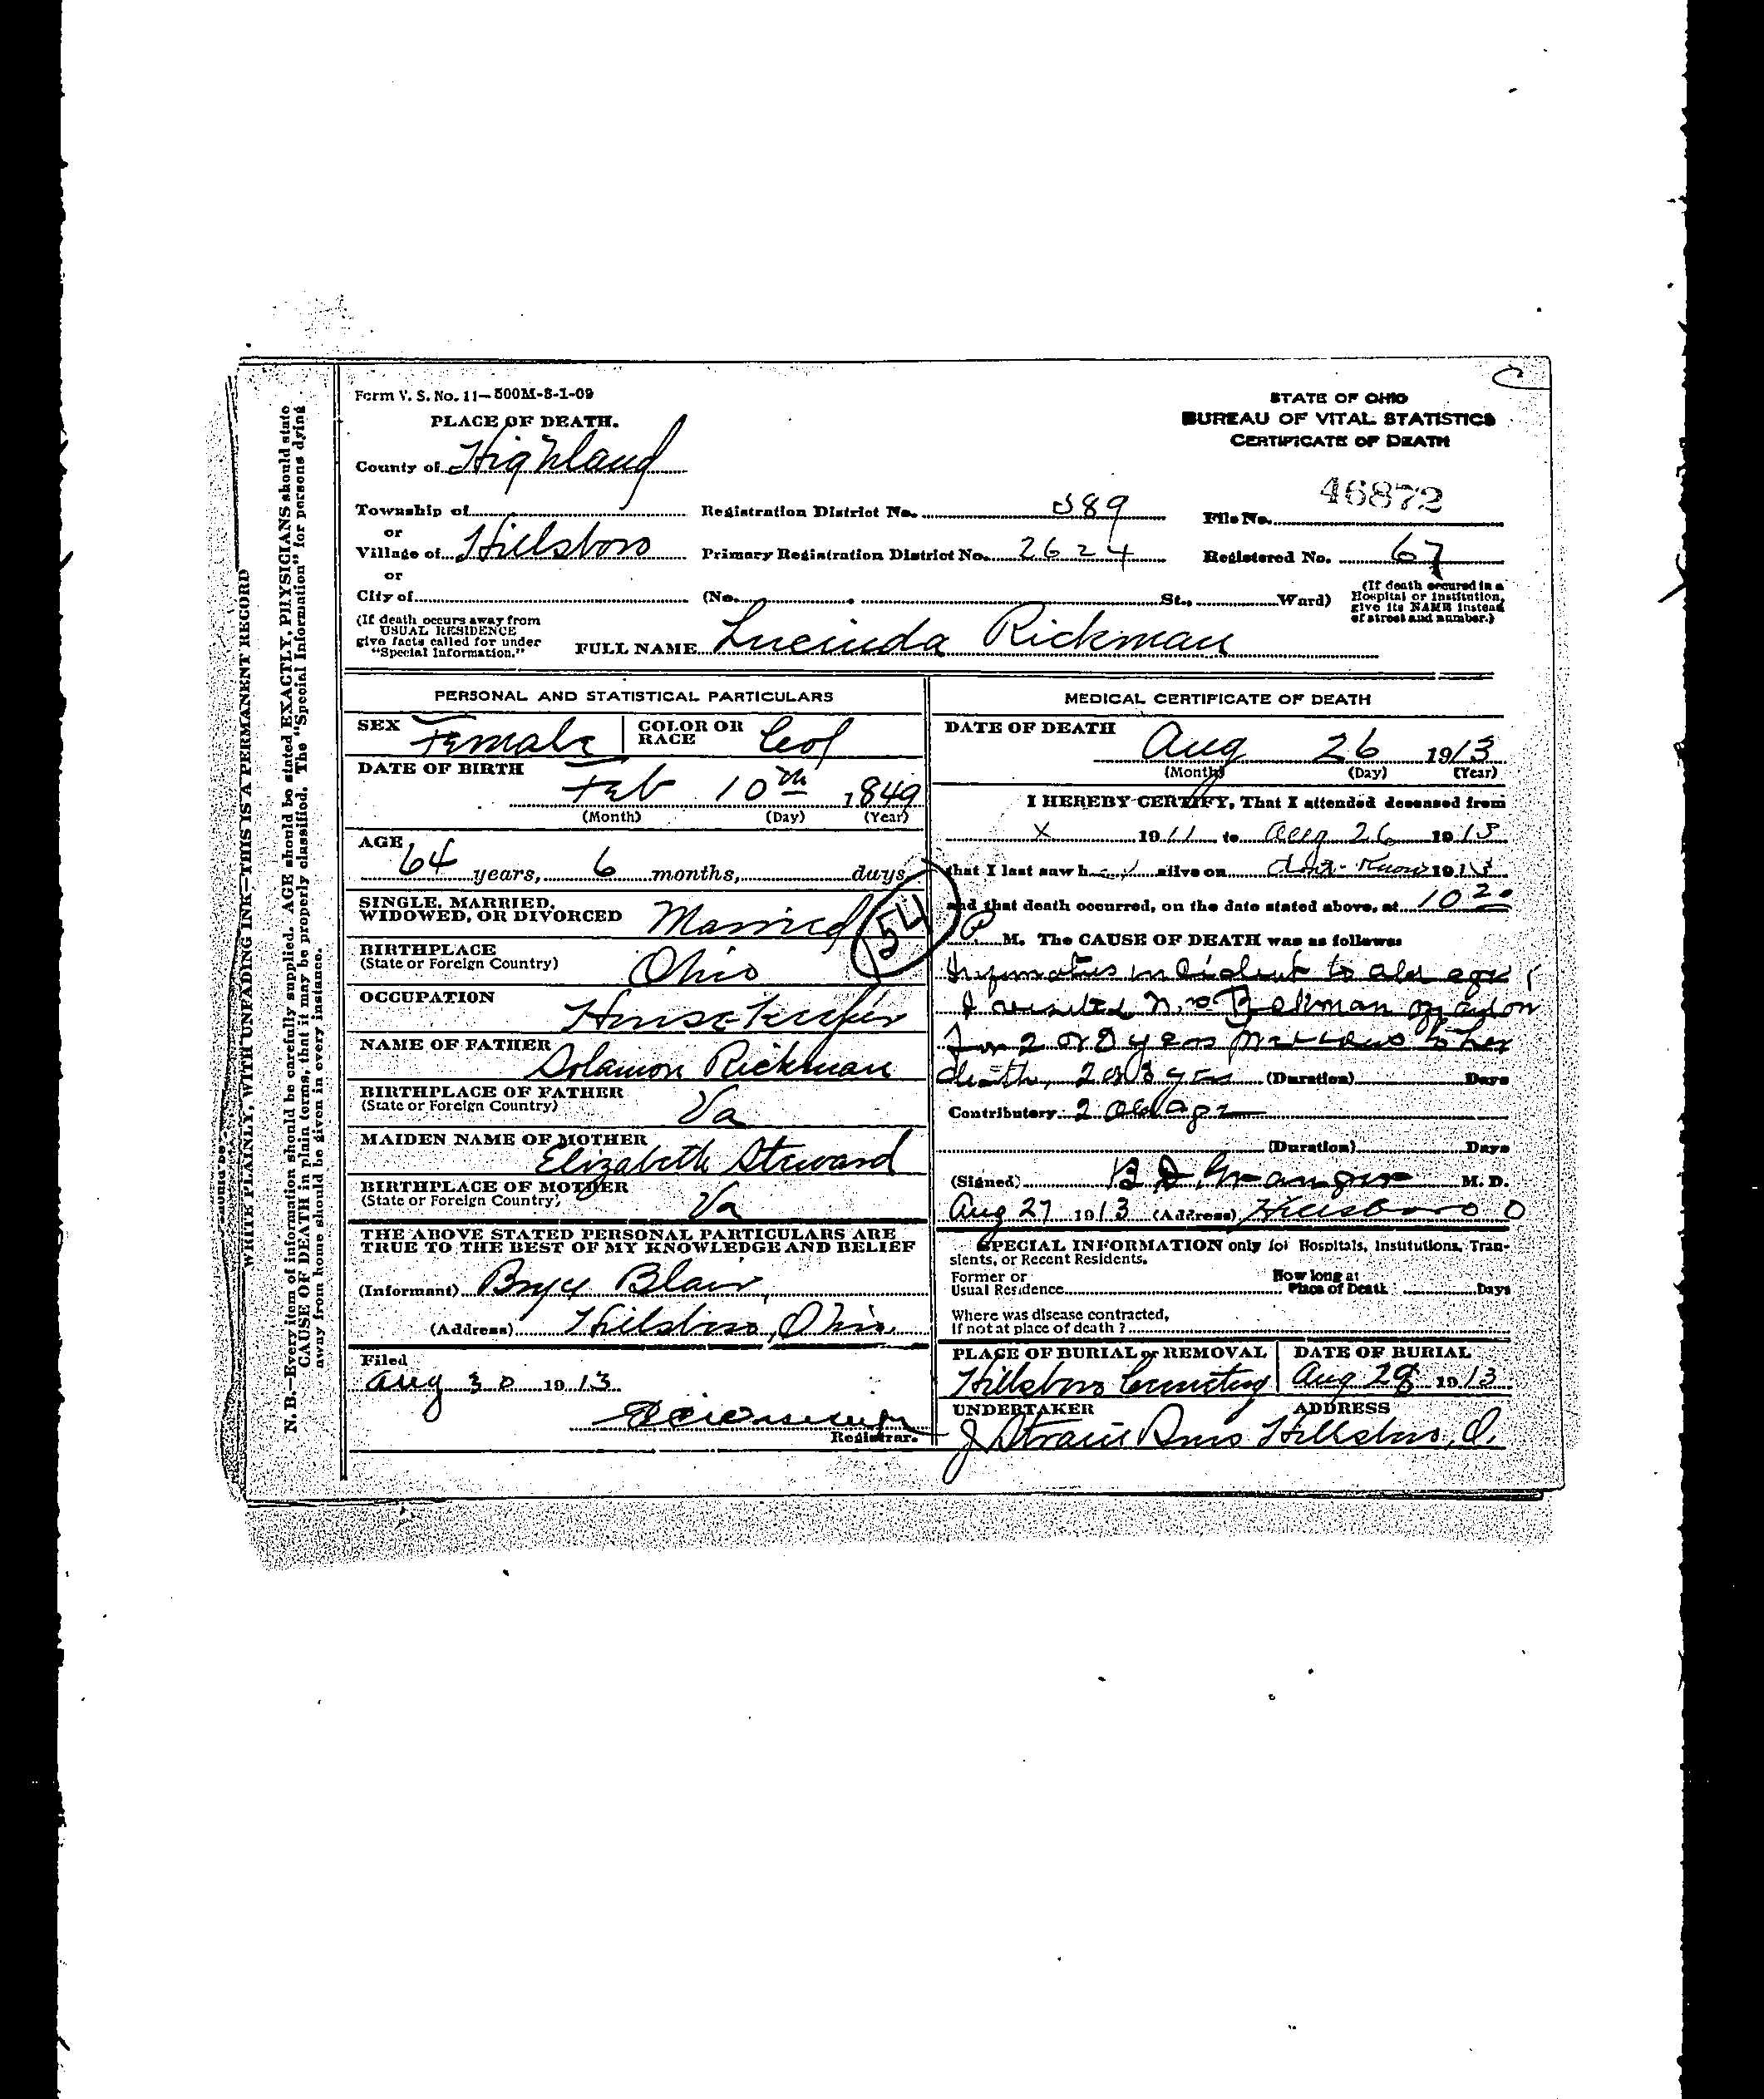 Form V. S. No. 11—500M-8-1-09
PLACE OF DEATH.
County of Highland
Township of
or
Village of Hillsboro
or
City of
(If death occurs away from
USUAL RESIDENCE
give facts called for under
"Special Information."
STATE OF OHIO
BUREAU OF VITAL STATISTICS
CERTIFICATE OF DEATH
C
Registration District No. 589
File No. 46872
Primary Registration District No. 2624
Registered No. 67
(No. St., Ward)
(If death occured in a
Hospital or institution,
give its NAME instead
of street and number.)
FULL NAME Lucinda Rickman
PERSONAL AND STATISTICAL PARTICULARS
SEX Female
COLOR OR
RACE Col
DATE OF BIRTH
Feb 10th 1849
(Month) (Day) (Year)
AGE
64 years, 6 months, days
SINGLE, MARRIED,
WIDOWED, OR DIVORCED Married
154
BIRTHPLACE
(State or Foreign Country) Ohio
OCCUPATION
House Keeper
NAME OF FATHER
Solamon Rickman
BIRTHPLACE OF FATHER
(State or Foreign Country) Va
MAIDEN NAME OF MOTHER
Elizabeth Steward
BIRTHPLACE OF MOTHER
(State or Foreign Country) Va
THE ABOVE STATED PERSONAL PARTICULARS ARE
TRUE TO THE BEST OF MY KNOWLEDGE AND BELIEF
(Informant) Blair
(Address) Hillsboro, Ohio
Filed
Aug 30 1913
Registrar.
MEDICAL CERTIFICATE OF DEATH
DATE OF DEATH
Aug 26 1913
(Month) (Day) (Year)
I HEREBY CERTIFY, That I attended deceased from
X 1911 to Aug 26 1913
that I last saw h alive on dont Know 191
and that death occurred, on the date stated above, at 10 20
P M. The CAUSE OF DEATH was as follows:
to old age
I visited
for 2 or 3 years previous to her
death, 2 or 3 yrs (Duration) Days
Contributory old age
(Duration) Days
(Signed) M. D.
Aug 27 1913 (Address) Hillsboro O
SPECIAL INFORMATION only for Hospitals, Institutions, Tran-
sients, or Recent Residents.
Former or
Usual Residence
How long at
Place of Death Days
Where was disease contracted,
If not at place of death?
PLACE OF BURIAL or REMOVAL
Hillsboro Cemetery
DATE OF BURIAL
Aug 28 1913
UNDERTAKER
ADDRESS
Hillsboro, O.
WRITE PLAINLY, WITH UNFADING INK—THIS IS A PERMANENT RECORD
N. B.—Every item of information should be carefully supplied. AGE should be stated EXACTLY, PHYSICIANS should state
CAUSE OF DEATH in plain terms, that it may be properly classified. The "Special Information" for persons dying
away from home should be given in every instance.